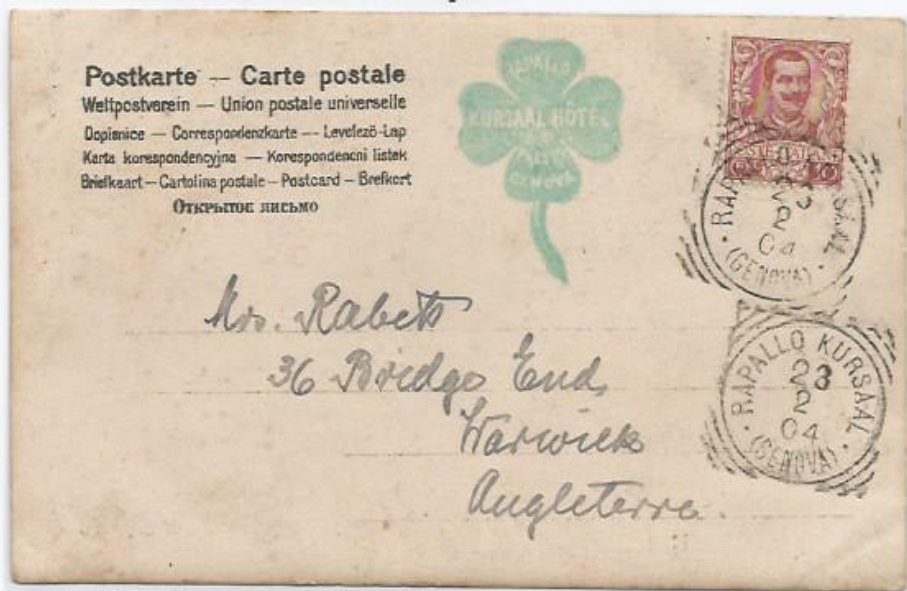 Postkarte — Carte postale
Weltpostverein — Union postale universelle
Dopisnice — Correspondenzkarte — Levelező-Lap
Karta korespondencyjna — Korespondencni listek
Briefkaart — Cartolina postale — Postcard — Brefkort
Открытое письмо
RAPALLO
KURSAAL HÔTEL
GENOVA
RAPALLO KURSAAL
23
2
04
(GENOVA)
Mrs. Rabets
36 Bridge End
Warwick
Angleterre.
RAPALLO KURSAAL
23
2
04
(GENOVA)